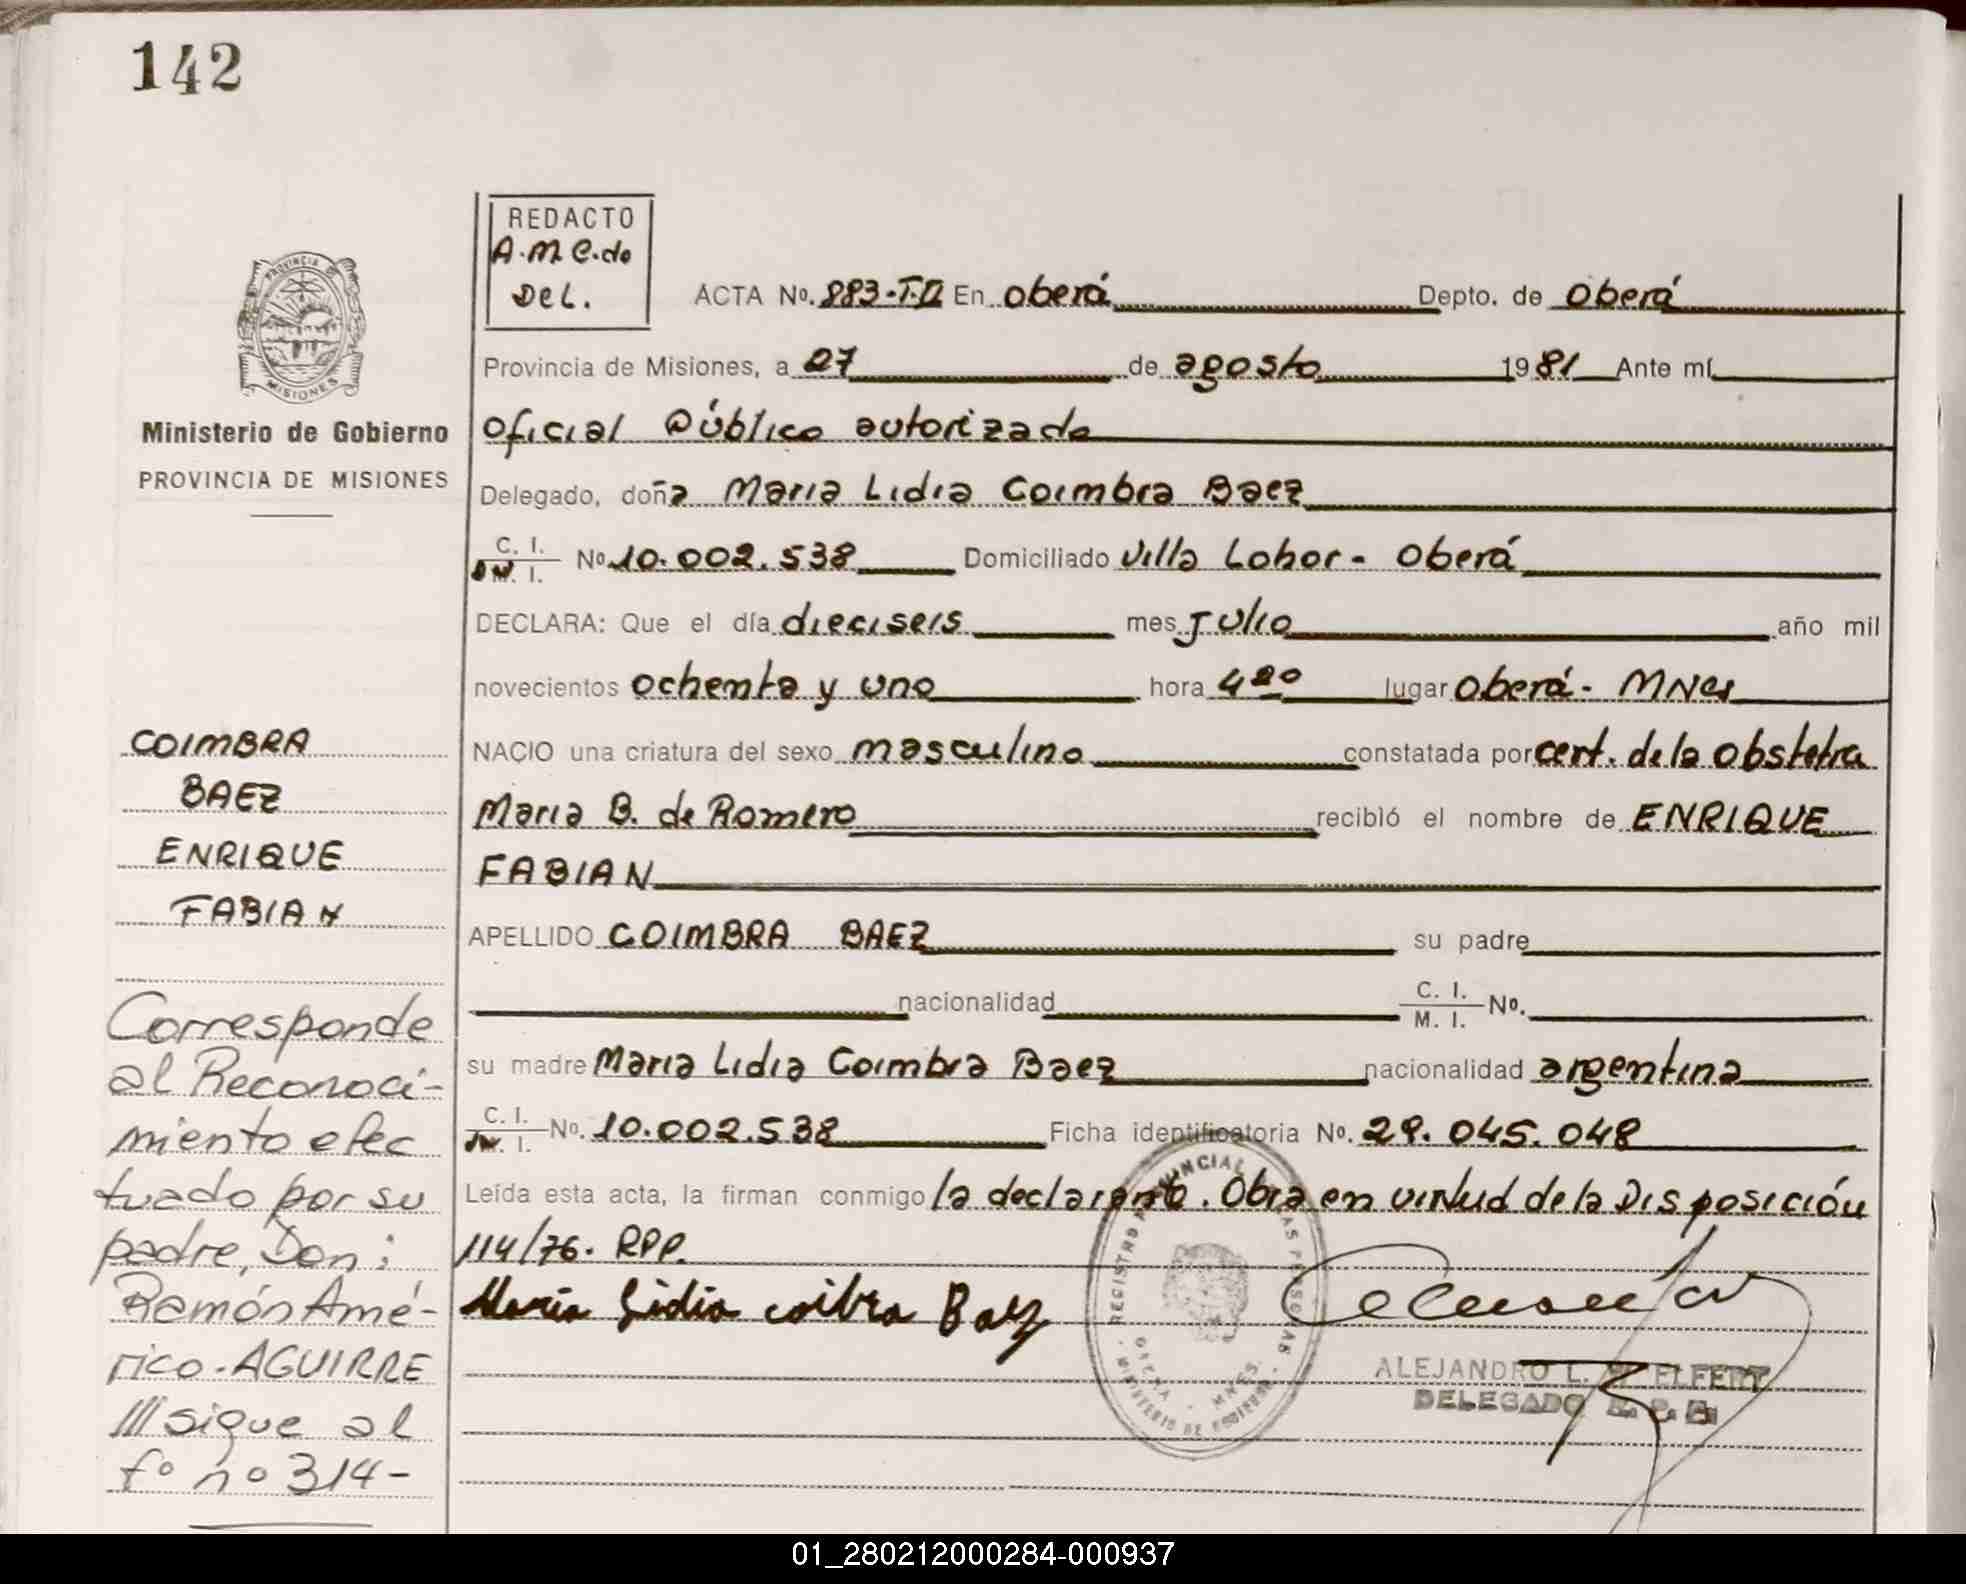 142
REDACTO
A.M.C.do
DEL.
ACTA No. 883-T.II En Oberá Depto. de Oberá
Provincia de Misiones, a 27 de agosto 1981 Ante mí
Oficial Público autorizado
Delegado, doña Maria Lidia Coimbra Baez
C. I.
M. I. No 10.002.538 Domiciliado Villa Lohor - Oberá
DECLARA: Que el día dieciseis mes Julio año mil
novecientos ochenta y uno hora 4 20 lugar Oberá - MNes
NACIO una criatura del sexo masculino constatada por cert. de la obstetra
Maria B. de Romero recibió el nombre de ENRIQUE
FABIAN
APELLIDO COIMBRA BAEZ su padre
nacionalidad C. I.
M. I. No.
su madre Maria Lidia Coimbra Baez nacionalidad argentina
C. I.
M. I. No. 10.002.538 Ficha identificatoria No. 29.045.048
Leída esta acta, la firman conmigo la declarante. Obra en virtud de la Disposición
114/76. RPP.
Maria Lidia coibra Baez
ALEJANDRO L. ELFERT
DELEGADO
PROVINCIA DE
MISIONES
Ministerio de Gobierno
PROVINCIA DE MISIONES
COIMBRA
BAEZ
ENRIQUE
FABIAN
Corresponde
al Reconoci-
miento efec
tuado por su
padre, Don:
Ramón Amé-
rico - AGUIRRE
/// sigue al
fº nº 314-
01_280212000284-000937